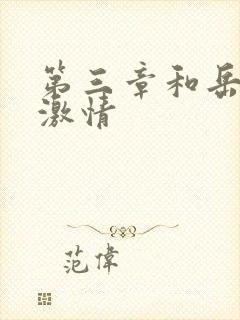 第三章和岳
激情
范偉